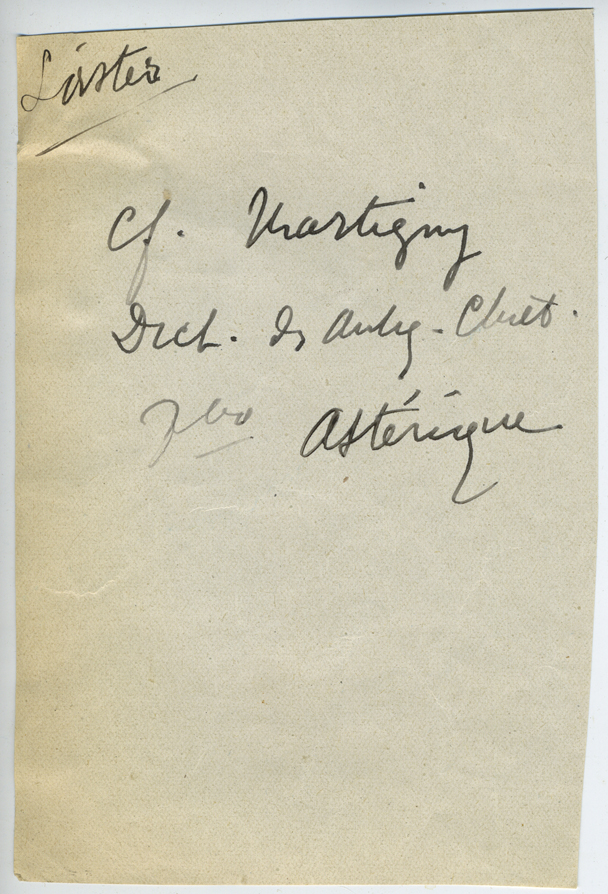 Cf. Martigny
Dict. ds Antiq. Chrét.
Vbo Astérique